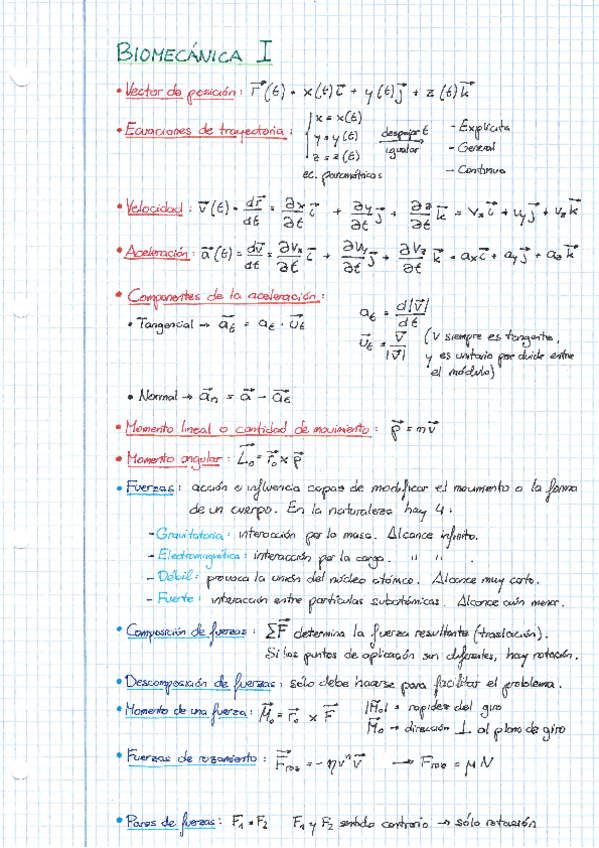 BIOMECÁNICA I
• Vector de posición: r⃗(t) = x(t)i⃗ + y(t)j⃗ + z(t)k⃗
• Ecuaciones de trayectoria: { x = x(t) y = y(t) z = z(t) despejar t igualar → - Explícita - General - Continua
ec. paramétricas
• Velocidad: v⃗(t) = dr⃗/dt = ∂x/∂t i⃗ + ∂y/∂t j⃗ + ∂z/∂t k⃗ = vₓi⃗ + v_y j⃗ + v_z k⃗
• Aceleración: a⃗(t) = dv⃗/dt = ∂vₓ/∂t i⃗ + ∂v_y/∂t j⃗ + ∂v_z/∂t k⃗ = aₓi⃗ + a_y j⃗ + a_z k⃗
• Componentes de la aceleración:
• Tangencial → a⃗t = at · u⃗t
at = d|v⃗|/dt
u⃗t = v⃗/|v⃗| (v siempre es tangente,
y es unitario por dividir entre
el módulo)
• Normal → a⃗n = a⃗ - a⃗t
• Momento lineal o cantidad de movimiento: p⃗ = mv⃗
• Momento angular: L⃗o = r⃗o × p⃗
• Fuerzas: acción o influencia capaz de modificar el movimento o la forma
de un cuerpo. En la naturaleza hay 4:
- Gravitatoria: interacción por la masa. Alcance infinito.
- Electromagnética: interacción por la carga. " "
- Débil: provoca la unión del núcleo atómico. Alcance muy corto.
- Fuerte: interacción entre partículas subatómicas. Alcance aún menor.
• Composición de fuerzas: ΣF⃗ determina la fuerza resultante (traslación).
Si los puntos de aplicación son diferentes, hay rotación.
• Descomposición de fuerzas: sólo debe hacerse para facilitar el problema.
• Momento de una fuerza: M⃗o = r⃗o × F⃗ |M⃗o| = rapidez del giro
M⃗o → dirección ⊥ al plano de giro
• Fuerzas de rozamiento: F⃗roz = -ηvⁿv⃗ → Froz = μN
• Pares de fuerzas: F₁ = F₂ F₁ y F₂ sentido contrario → sólo rotación